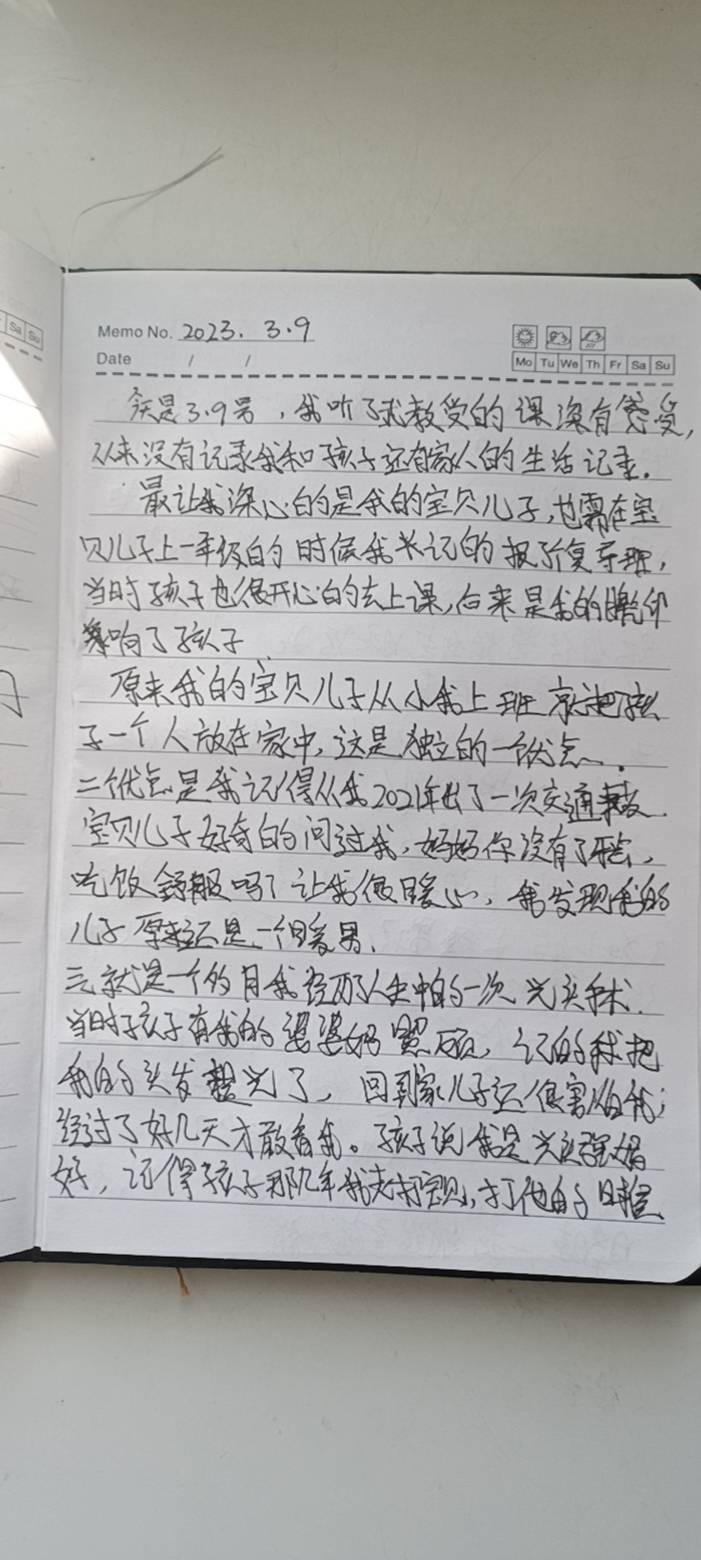 Sa Su
Memo No. 2023. 3.9
Date / /
Mo Tu We Th Fr Sa Su
今天是3.9号，我听了 教授的课深有感受，
从来没有记录我和孩子还有家人的生活记录.
最让我深心的是我的宝贝儿子，也需在宝
贝儿子上一年级的时候我长记的报了 复 班，
当时孩子也很开心的去上课，后来是我的
响了孩子
原来我的宝贝儿子从小我上班就把孩
子一个人放在家中，这是独立的一个优点.
二个优点是我记得从我2021年出了一次交通事故.
宝贝儿子好奇的问过我，妈妈你没有了牙齿，
吃饭舒服吗？让我很暖心，我发现我的
儿子原来还是一个暖男.
三就是一个的月我经历了人生中的一次光头手术.
当时孩子有我的婆婆妈照顾，记的 把
我的头发 光了，回到家儿子还很害怕我；
经过了好几天才敢看我。孩子说我是光头强媳
好，记得孩子那几年我去打 ，打他的时候